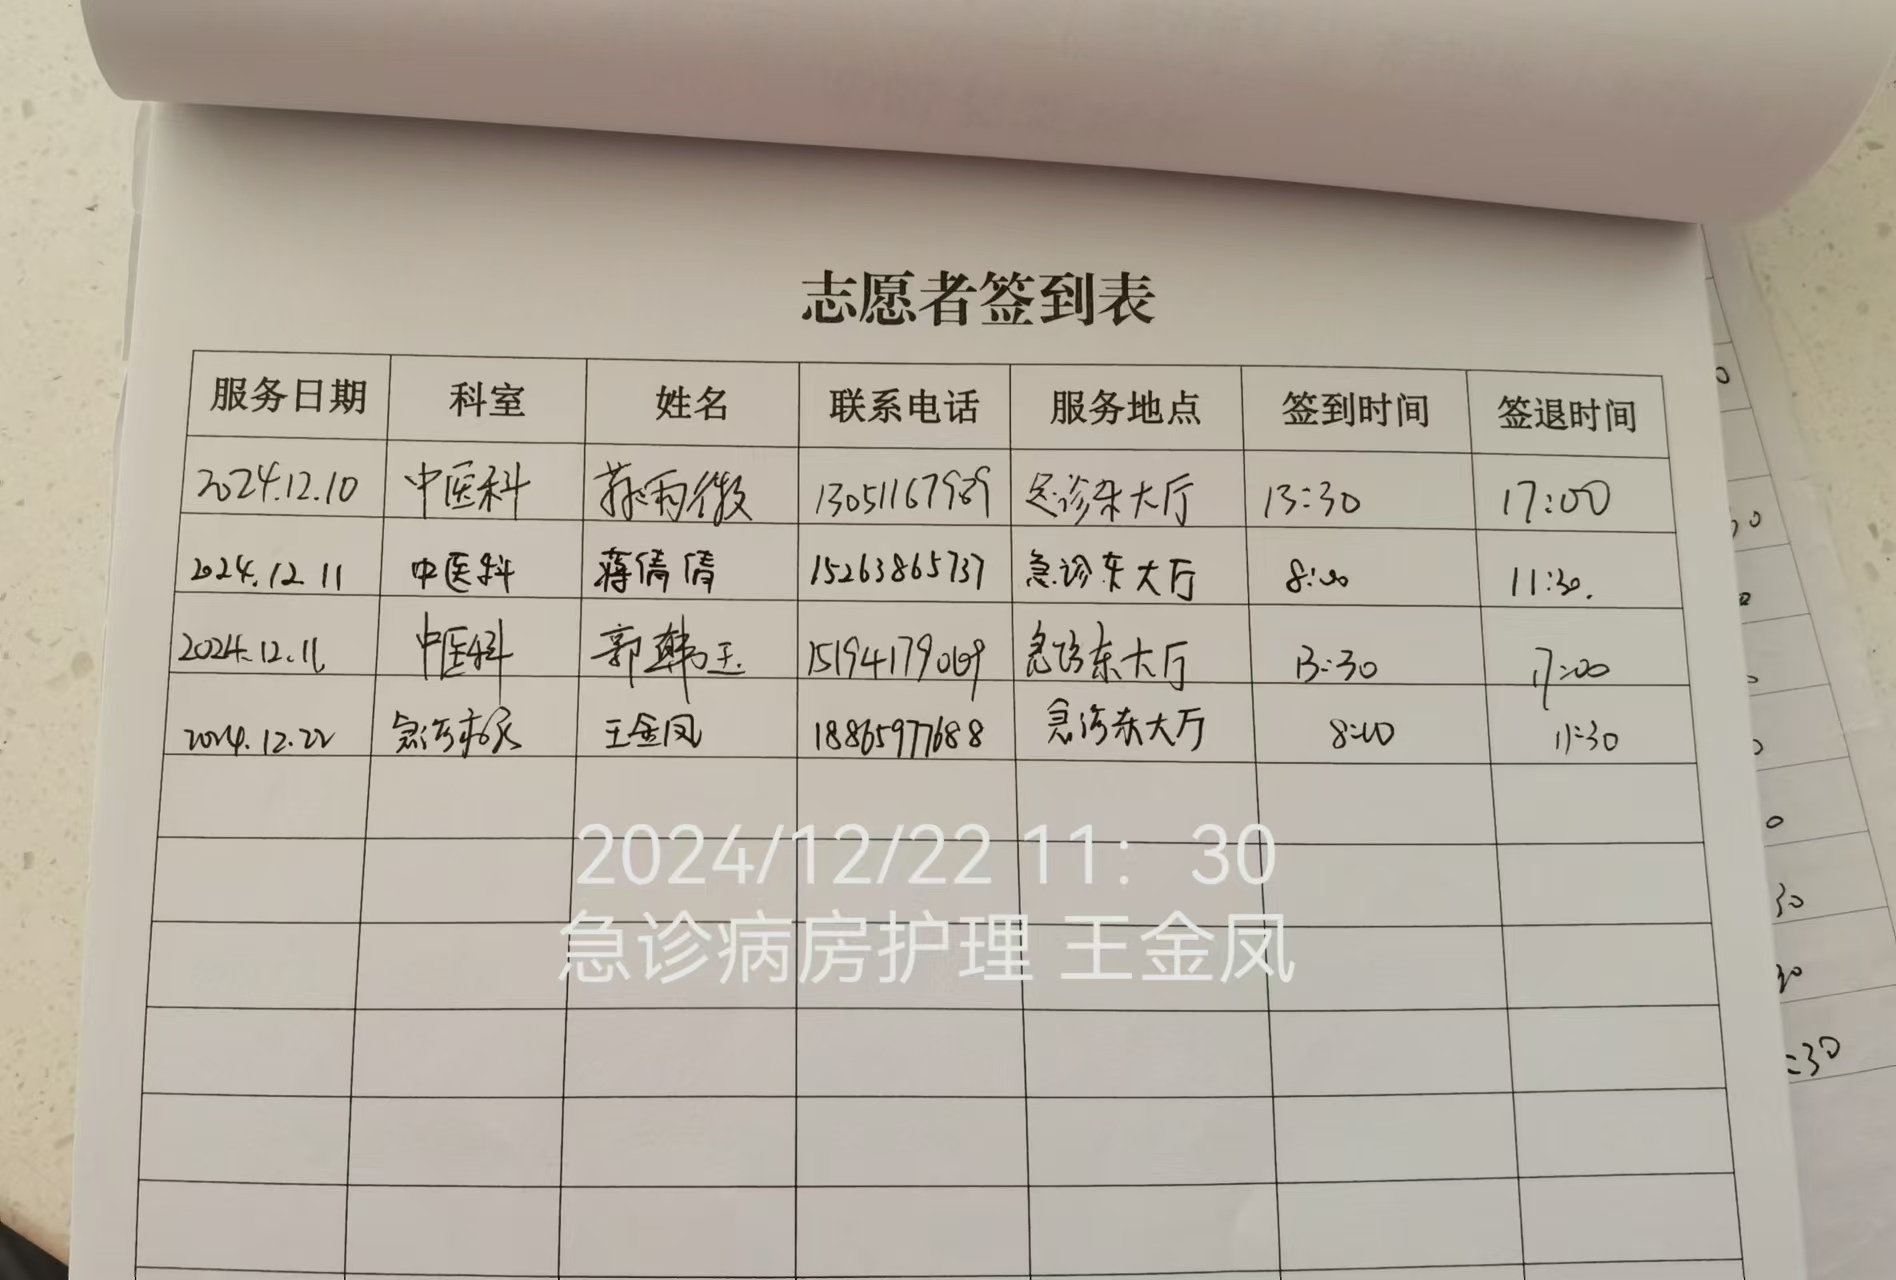 志愿者签到表
服务日期 科室 姓名 联系电话 服务地点 签到时间 签退时间
2024.12.10 中医科 雨微 13051167989 急诊东大厅 13:30 17:00
2024.12.11 中医科 蒋倩倩 15263865737 急诊东大厅 8:00 11:30.
2024.12.11 中医科 郭韩玉 15194179069 急诊东大厅 13:30 17:00
2024.12.22 急诊病房 王金凤 18865977688 急诊东大厅 8:00 11:30
2024/12/22 11：30
急诊病房护理 王金凤